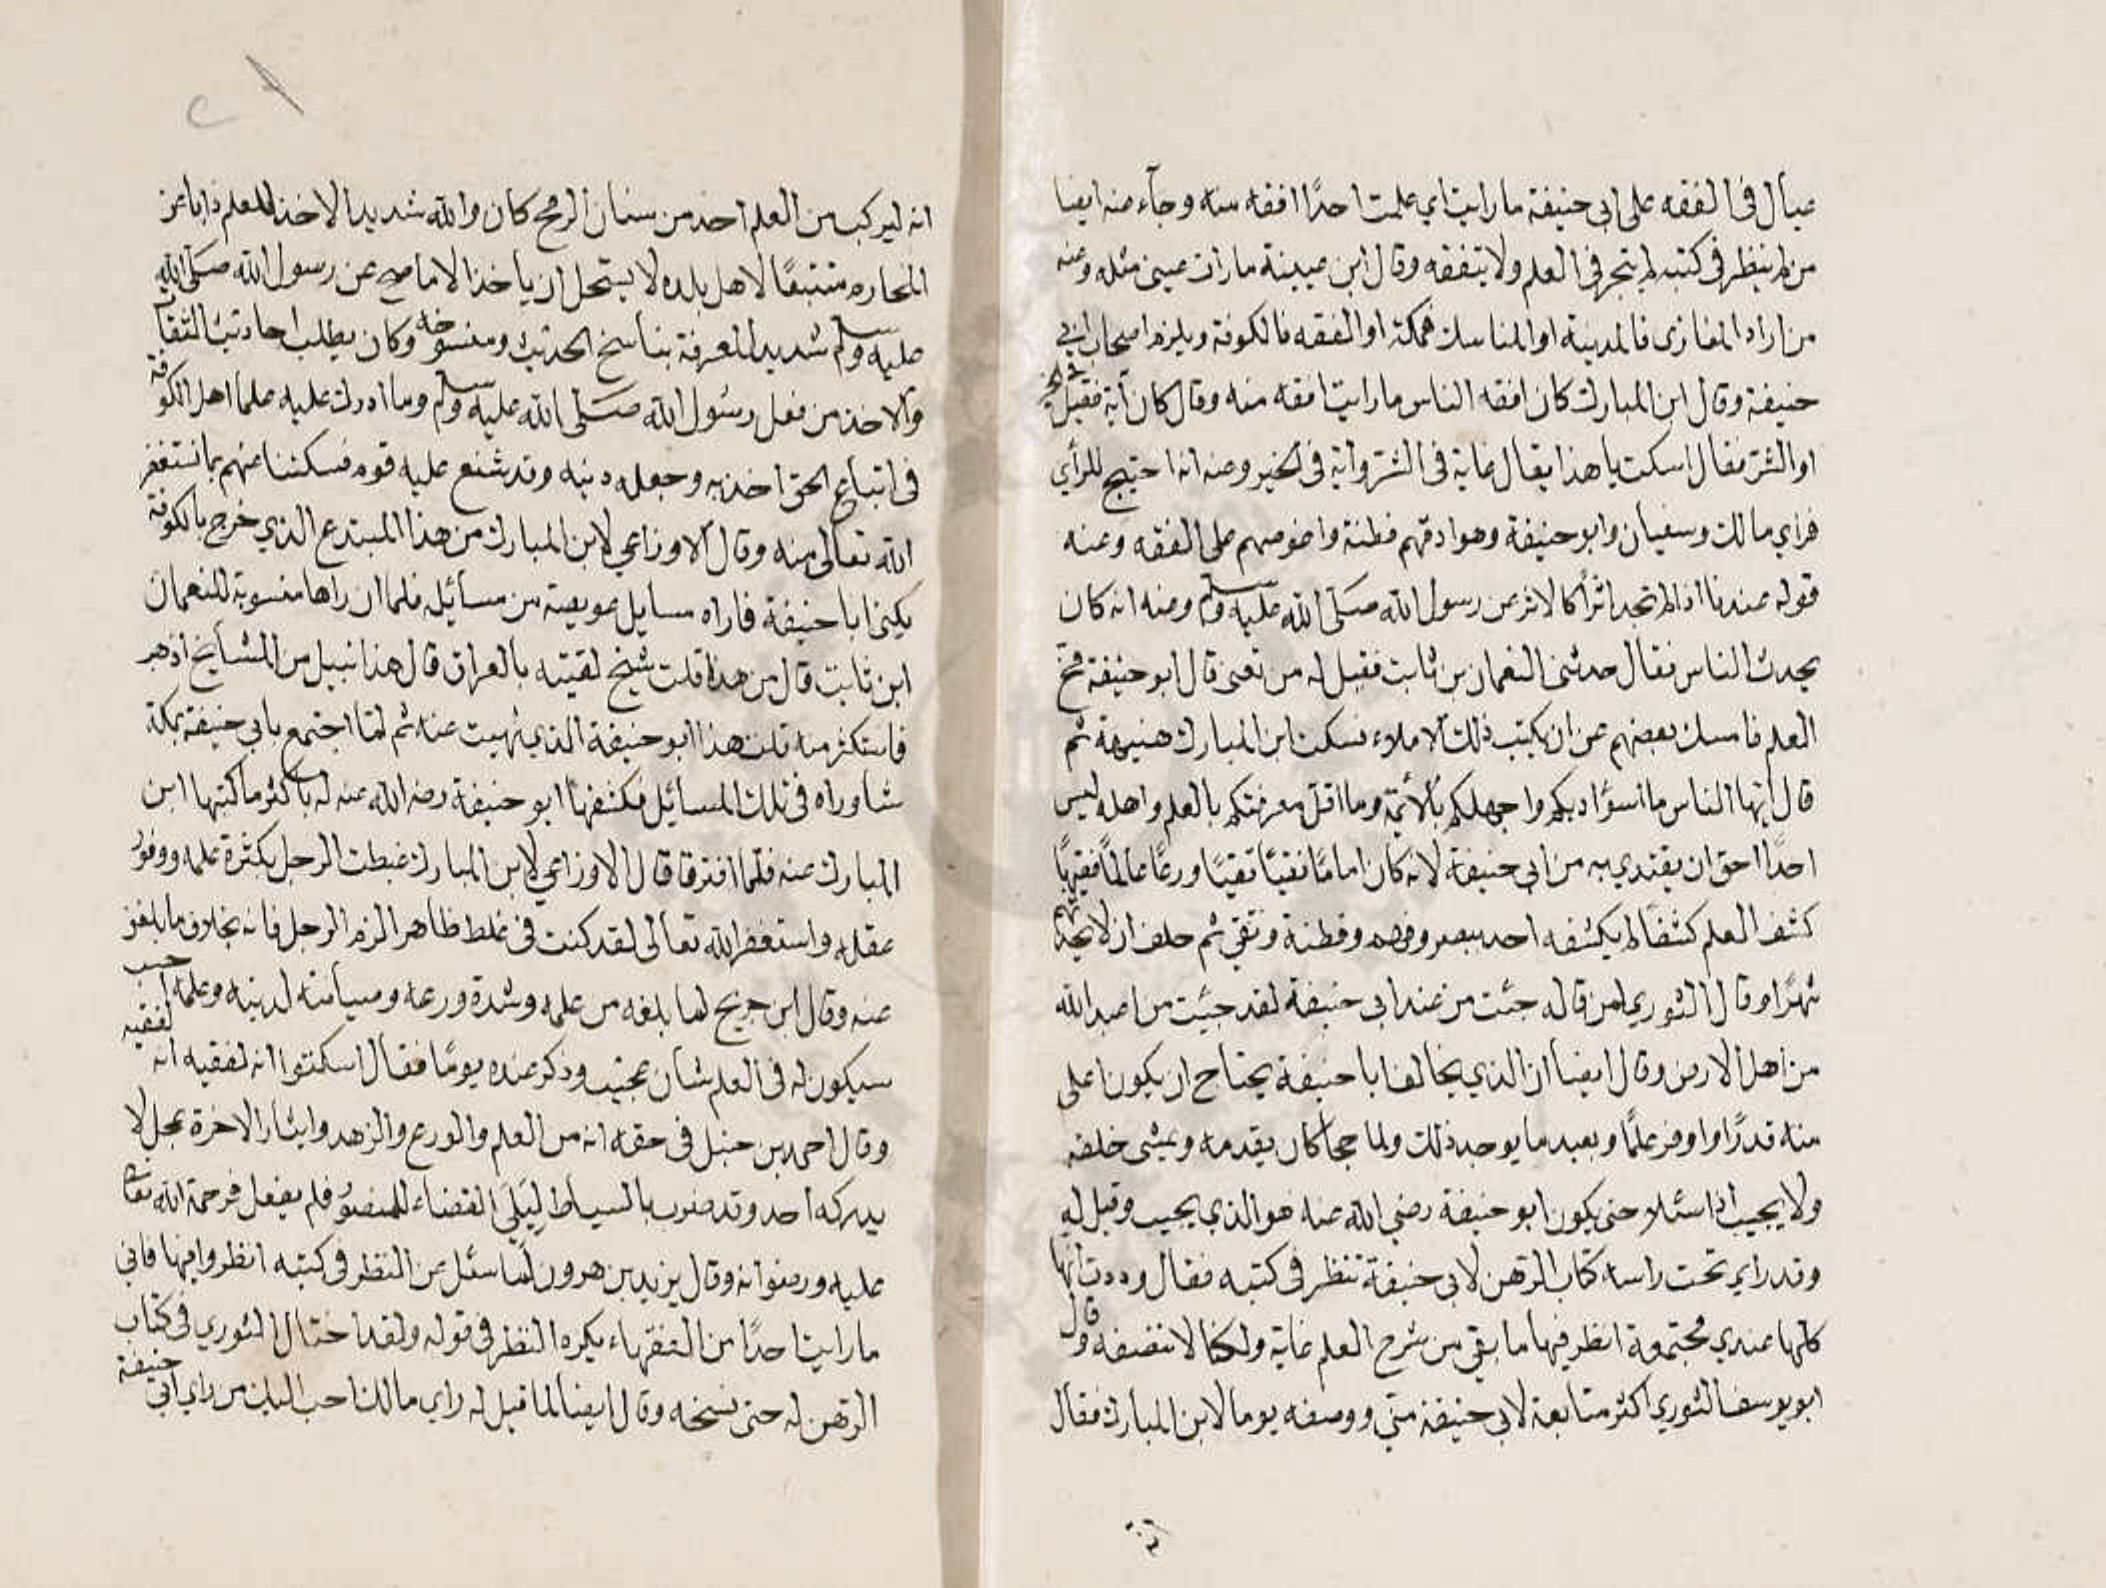 عيال في الفقه على ابي حنيفة ما رايت اي علمت احدًا افقه منه وجآء منه ايضا
من لم ينظر في كتبه لم يتبحر في العلم ولا يتفقه وقال ابن عيينة ما رات عيني مثله وعنه
من اراد المغازي فالمدينة او المناسك فمكة او الفقه فالكوفة ويلزم اصحاب ابي
حنيفة وقال ابن المبارك كان افقه الناس ما رايت افقه منه وقال كان آية فقيل في الخير
او الشر فقال اسكت يا هذا يقال غاية في الشر وآية في الخير وعنه ان احتيج للرأي
فراي مالك وسفيان وابو حنيفة وهو ادقهم فطنة واغوصهم على الفقه وعنه
قوله عندنا اذا لم نجد اثرًا كالاثر عن رسول الله صلى الله عليه وسلم وعنه انه كان
يحدث الناس فقال حدثني النعمان بن ثابت فقيل له من تعني قال ابو حنيفة مخ
العلم فامسك بعضهم عن ان يكتب ذلك الاملاء فسكت ابن المبارك هنيهة ثم
قال ايها الناس ما اسوأ ادبكم واجهلكم بالأئمة وما اقل معرفتكم بالعلم واهله ليس
احدًا احق ان يقتدي به من ابي حنيفة لانه كان امامًا نقيًا تقيًا ورعًا عالمًا فقيهًا
كشف العلم كشفًا لم يكشفه احد ببصر وفهم وفطنة وتقي ثم حلف ان لا يحدثهم
شهرًا وقال الثوري لمن قال له جئت من عند ابي حنيفة لقد جئت من اعبد الله
من اهل الارض وقال ايضا ان الذي يخالف ابا حنيفة يحتاج ان يكون اعلى
منه قدرًا واوفر علمًا وبعيد ما يوجد ذلك ولما حجا كان يقدمه ويمشي خلفه
ولا يجيب اذا سئلا حتى يكون ابو حنيفة رضي الله عنه هو الذي يجيب وقيل له
وقد راي تحت راسه كتاب الرهن لابي حنيفة تنظر في كتبه فقال وددت انها
كلها عندي مجتمعة انظر فيها ما بقي من شرح العلم غاية ولكنا لا ننصفه وقال
ابو يوسف الثوري اكثر متابعة لابي حنيفة مني ووصفه يوما لابن المبارك فقال
انه
انه ليركب من العلم احد من سنان الرمح كان والله شديد الاخذ للعلم ذابا عن
المحارم متبعًا لاهل بلده لا يستحل ان ياخذ الا ما صح عن رسول الله صلى الله
عليه وسلم شديد المعرفة بناسخ الحديث ومنسوخه وكان يطلب احاديث الثقات
والاخذ من فعل رسول الله صلى الله عليه وسلم وما ادرك عليه علما اهل الكوفة
في اتباع الحق اخذ به وجعله دينه وقد شنع عليه قوم فسكتنا عنهم بما نستغفر
الله تعالى منه وقال الاوزاعي لابن المبارك من هذا المبتدع الذي خرج بالكوفة
يكنى ابا حنيفة فاراه مسايل عويصة من مسائله فلما ان راها منسوبة للنعمان
ابن ثابت قال من هذا قلت شيخ لقيته بالعراق قال هذا نبيل من المشايخ اذهب
فاستكثر منه قلت هذا ابو حنيفة الذي نهيت عنه ثم لما اجتمع بابي حنيفة بمكة
شاوراه في تلك المسائل فكشفها ابو حنيفة رضي الله عنه له باكثر ما كتبها ابن
المبارك عنه فلما افترقا قال الاوزاعي لابن المبارك غبطت الرجل بكثرة علمه ووفور
عقله واستغفر الله تعالى لقد كنت في غلط ظاهر الزم الرجل فانه بخلاف ما بلغني
عنه وقال ابن جريج لما بلغه من علمه وشدة ورعه وصيانته لدينه وعلمه احسب
سيكون له في العلم شان عجيب وذكر عنده يومًا فقال اسكتوا انه لفقيه انه لفقيه
وقال احمد بن حنبل في حقه انه من العلم والورع والزهد وايثار الاخرة بمحل لا
يدركه احد وقد ضرب بالسياط ليلي القضاء للمنصور فلم يفعل فرحمة الله تعالى
عليه ورضوانه وقال يزيد بن هرون لما سئل عن النظر في كتبه انظروا فيها فاني
ما رايت احدًا من الفقهاء يكره النظر في قوله ولقد احتال الثوري في كتاب
الرهن له حتى نسخه وقال ايضا لما قيل له راي مالك احب اليك من راي ابي حنيفة